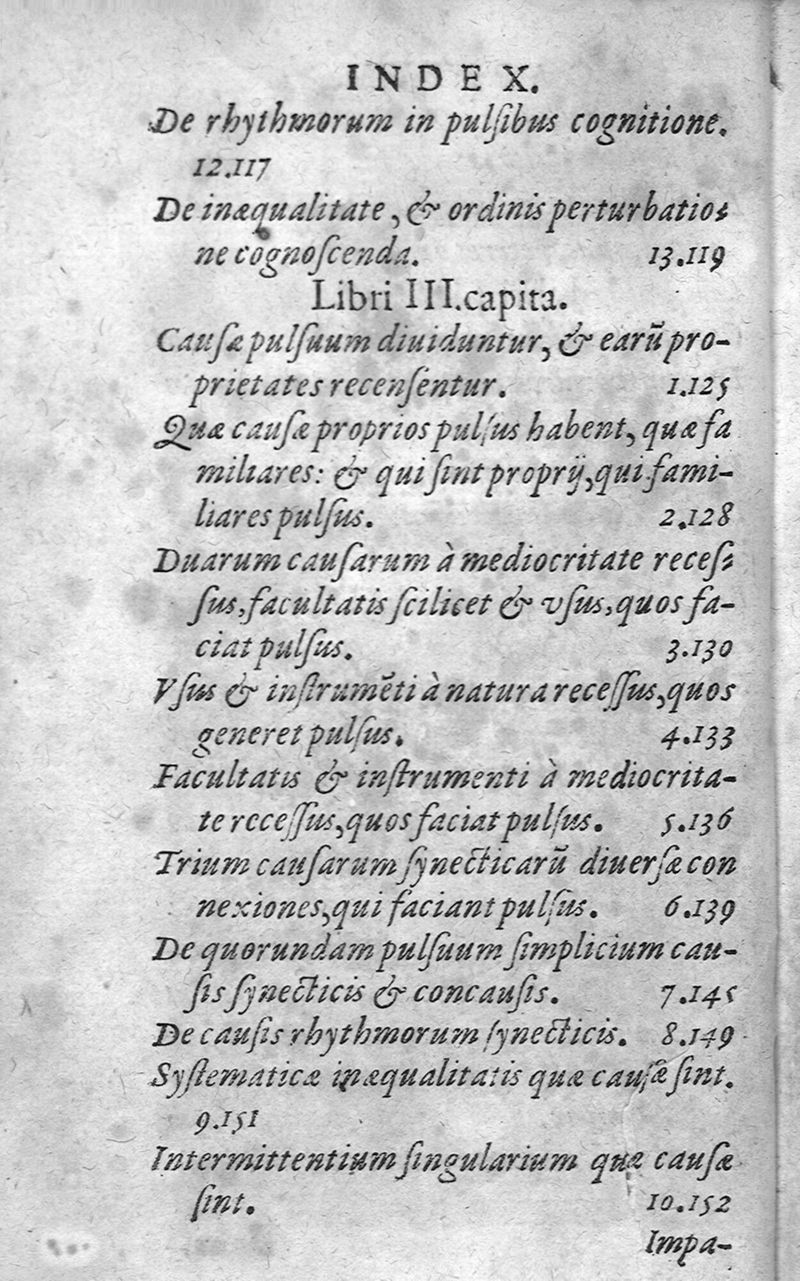 INDEX.
De rhythmorum in pulſibus cognitione.
12.117
De inæqualitate, & ordinis perturbatio-
ne cognoſcenda. 13.119
Libri III. capita.
Cauſæ pulſuum diuiduntur, & earũ pro-
prietates recenſentur. 1.125
Quæ cauſæ proprios pulſus habent, quæ fa
miliares: & qui ſint proprij, qui fami-
liares pulſus. 2.128
Duarum cauſarum à mediocritate receſ-
ſus, facultatis ſcilicet & vſus, quos fa-
ciat pulſus. 3.130
Vſus & inſtrumẽti à natura receſſus, quos
generet pulſus. 4.133
Facultatis & inſtrumenti à mediocrita-
te receſſus, quos faciat pulſus. 5.136
Trium cauſarum ſynecticarũ diuerſæ con
nexiones, qui faciant pulſus. 6.139
De quorundam pulſuum ſimplicium cau-
ſis ſynecticis & concauſis. 7.145
De cauſis rhythmorum ſynecticis. 8.149
Syſtematicæ inæqualitatis quæ cauſæ ſint.
9.151
Intermittentium ſingularium quæ cauſæ
ſint. 10.152
Impa-